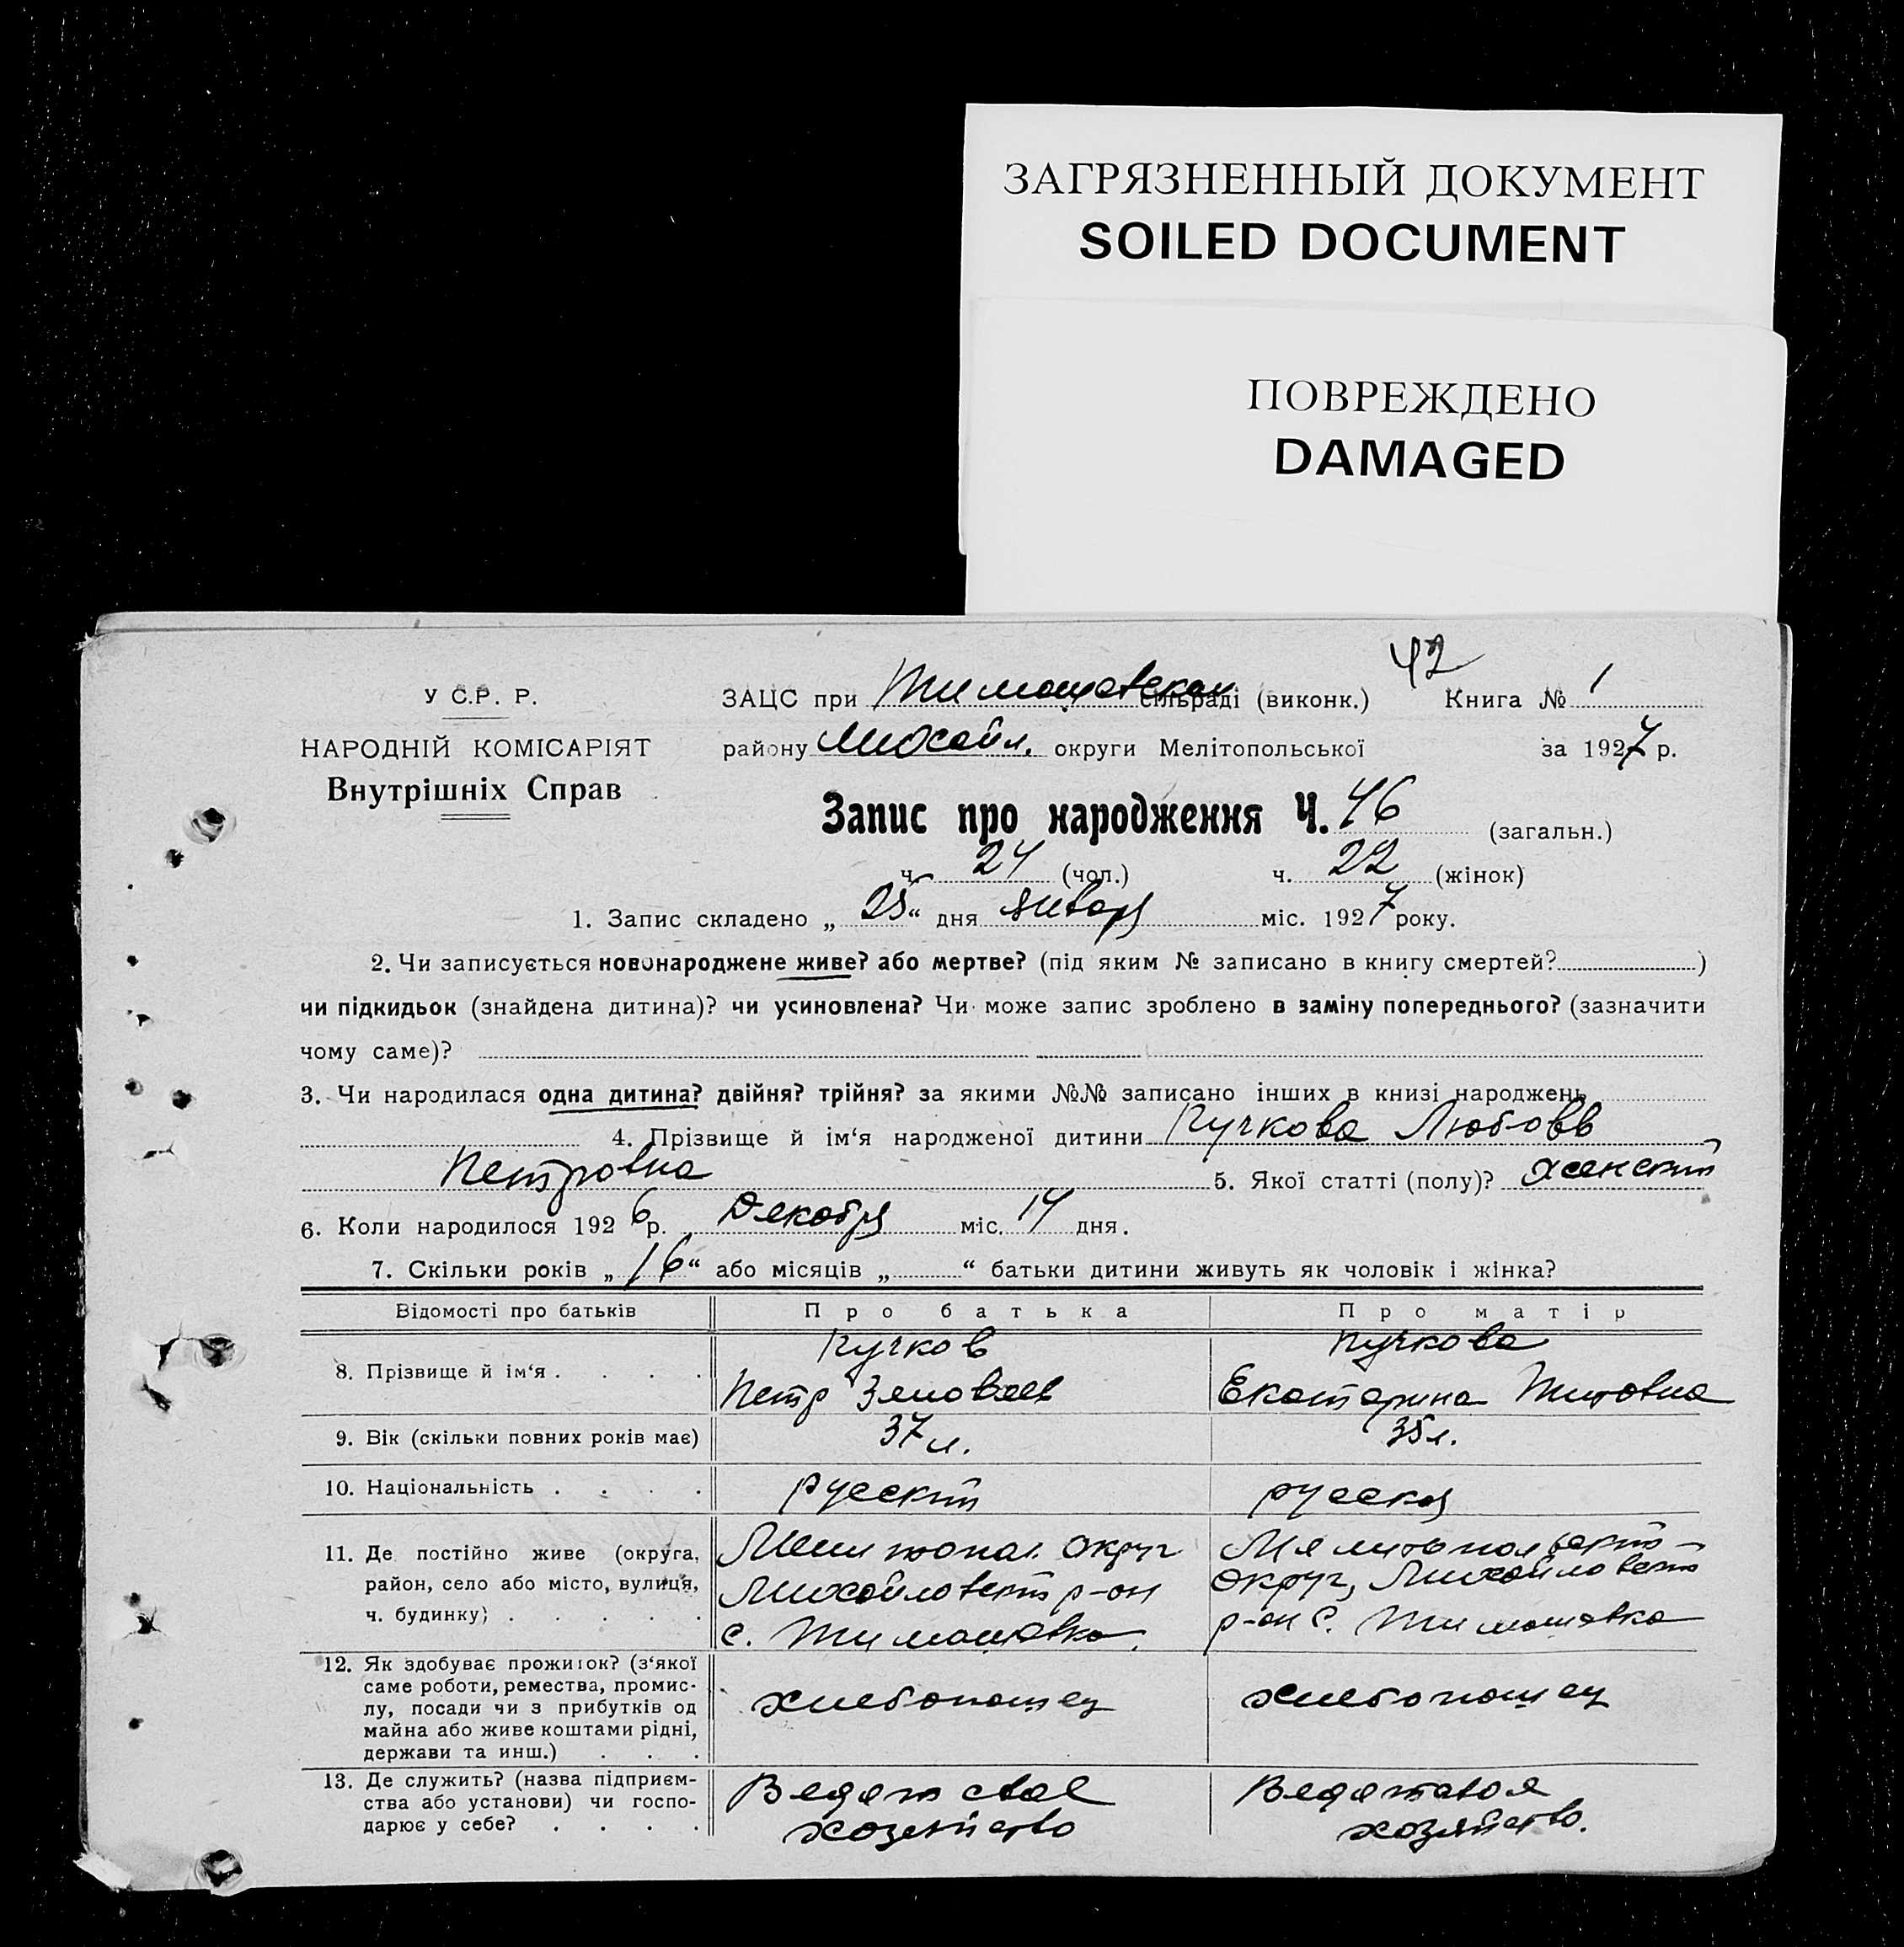 ЗАГРЯЗНЕННЫЙ ДОКУМЕНТ
SOILED DOCUMENT
ПОВРЕЖДЕНО
DAMAGED
42
У С.Р. Р.
ЗАЦС при Тимошовском сільраді (виконк.) Книга № 1
НАРОДНІЙ КОМІСАРІЯТ
району Михайл. округи Мелітопольської за 1927 р.
Внутрішніх Справ
Запис про народження Ч. 46 (загальн.)
ч. 24 (чол.) ч. 22 (жінок)
1. Запис складено „25“ дня январ міс. 1927 року.
2. Чи записується новонароджене живе? або мертве? (під яким № записано в книгу смертей? )
чи підкидьок (знайдена дитина)? чи усиновлена? Чи може запис зроблено в заміну попереднього? (зазначити
чому саме)?
3. Чи народилася одна дитина? двійня? трійня? за якими №№ записано інших в книзі народжень
4. Прізвище й ім‘я народженої дитини Пучкова Любовь
Петровна 5. Якої статті (полу)? женский
6. Коли народилося 1926 р. Декабря міс. 14 дня.
7. Скільки років „16“ або місяців „ “ батьки дитини живуть як чоловік і жінка?
Відомості про батьків Про батька Про матір
Пучков Пучкова
8. Прізвище й ім‘я . . . . Петр Екатерина Титовна
9. Вік (скільки повних років має) 37 л. 35 л.
10. Національність . . . . русский русская
11. Де постійно живе (округа, Мелитопол. округ Мелитопольский
район, село або місто, вулиця, Михайловский р-он округ, Михайловский
ч. будинку) . . . . . с. Тимошовка. р-он с. Тимошовка
12. Як здобуває прожиток? (з‘якої
саме роботи, ремества, промис-
лу, посади чи з прибутків од хлебопашец хлебопашец
майна або живе коштами рідні,
держави та инш.) . . .
13. Де служить? (назва підприєм- Ведет свое
ства або установи) чи госпо-
дарює у себе? . . . . хозяйство хозяйство.